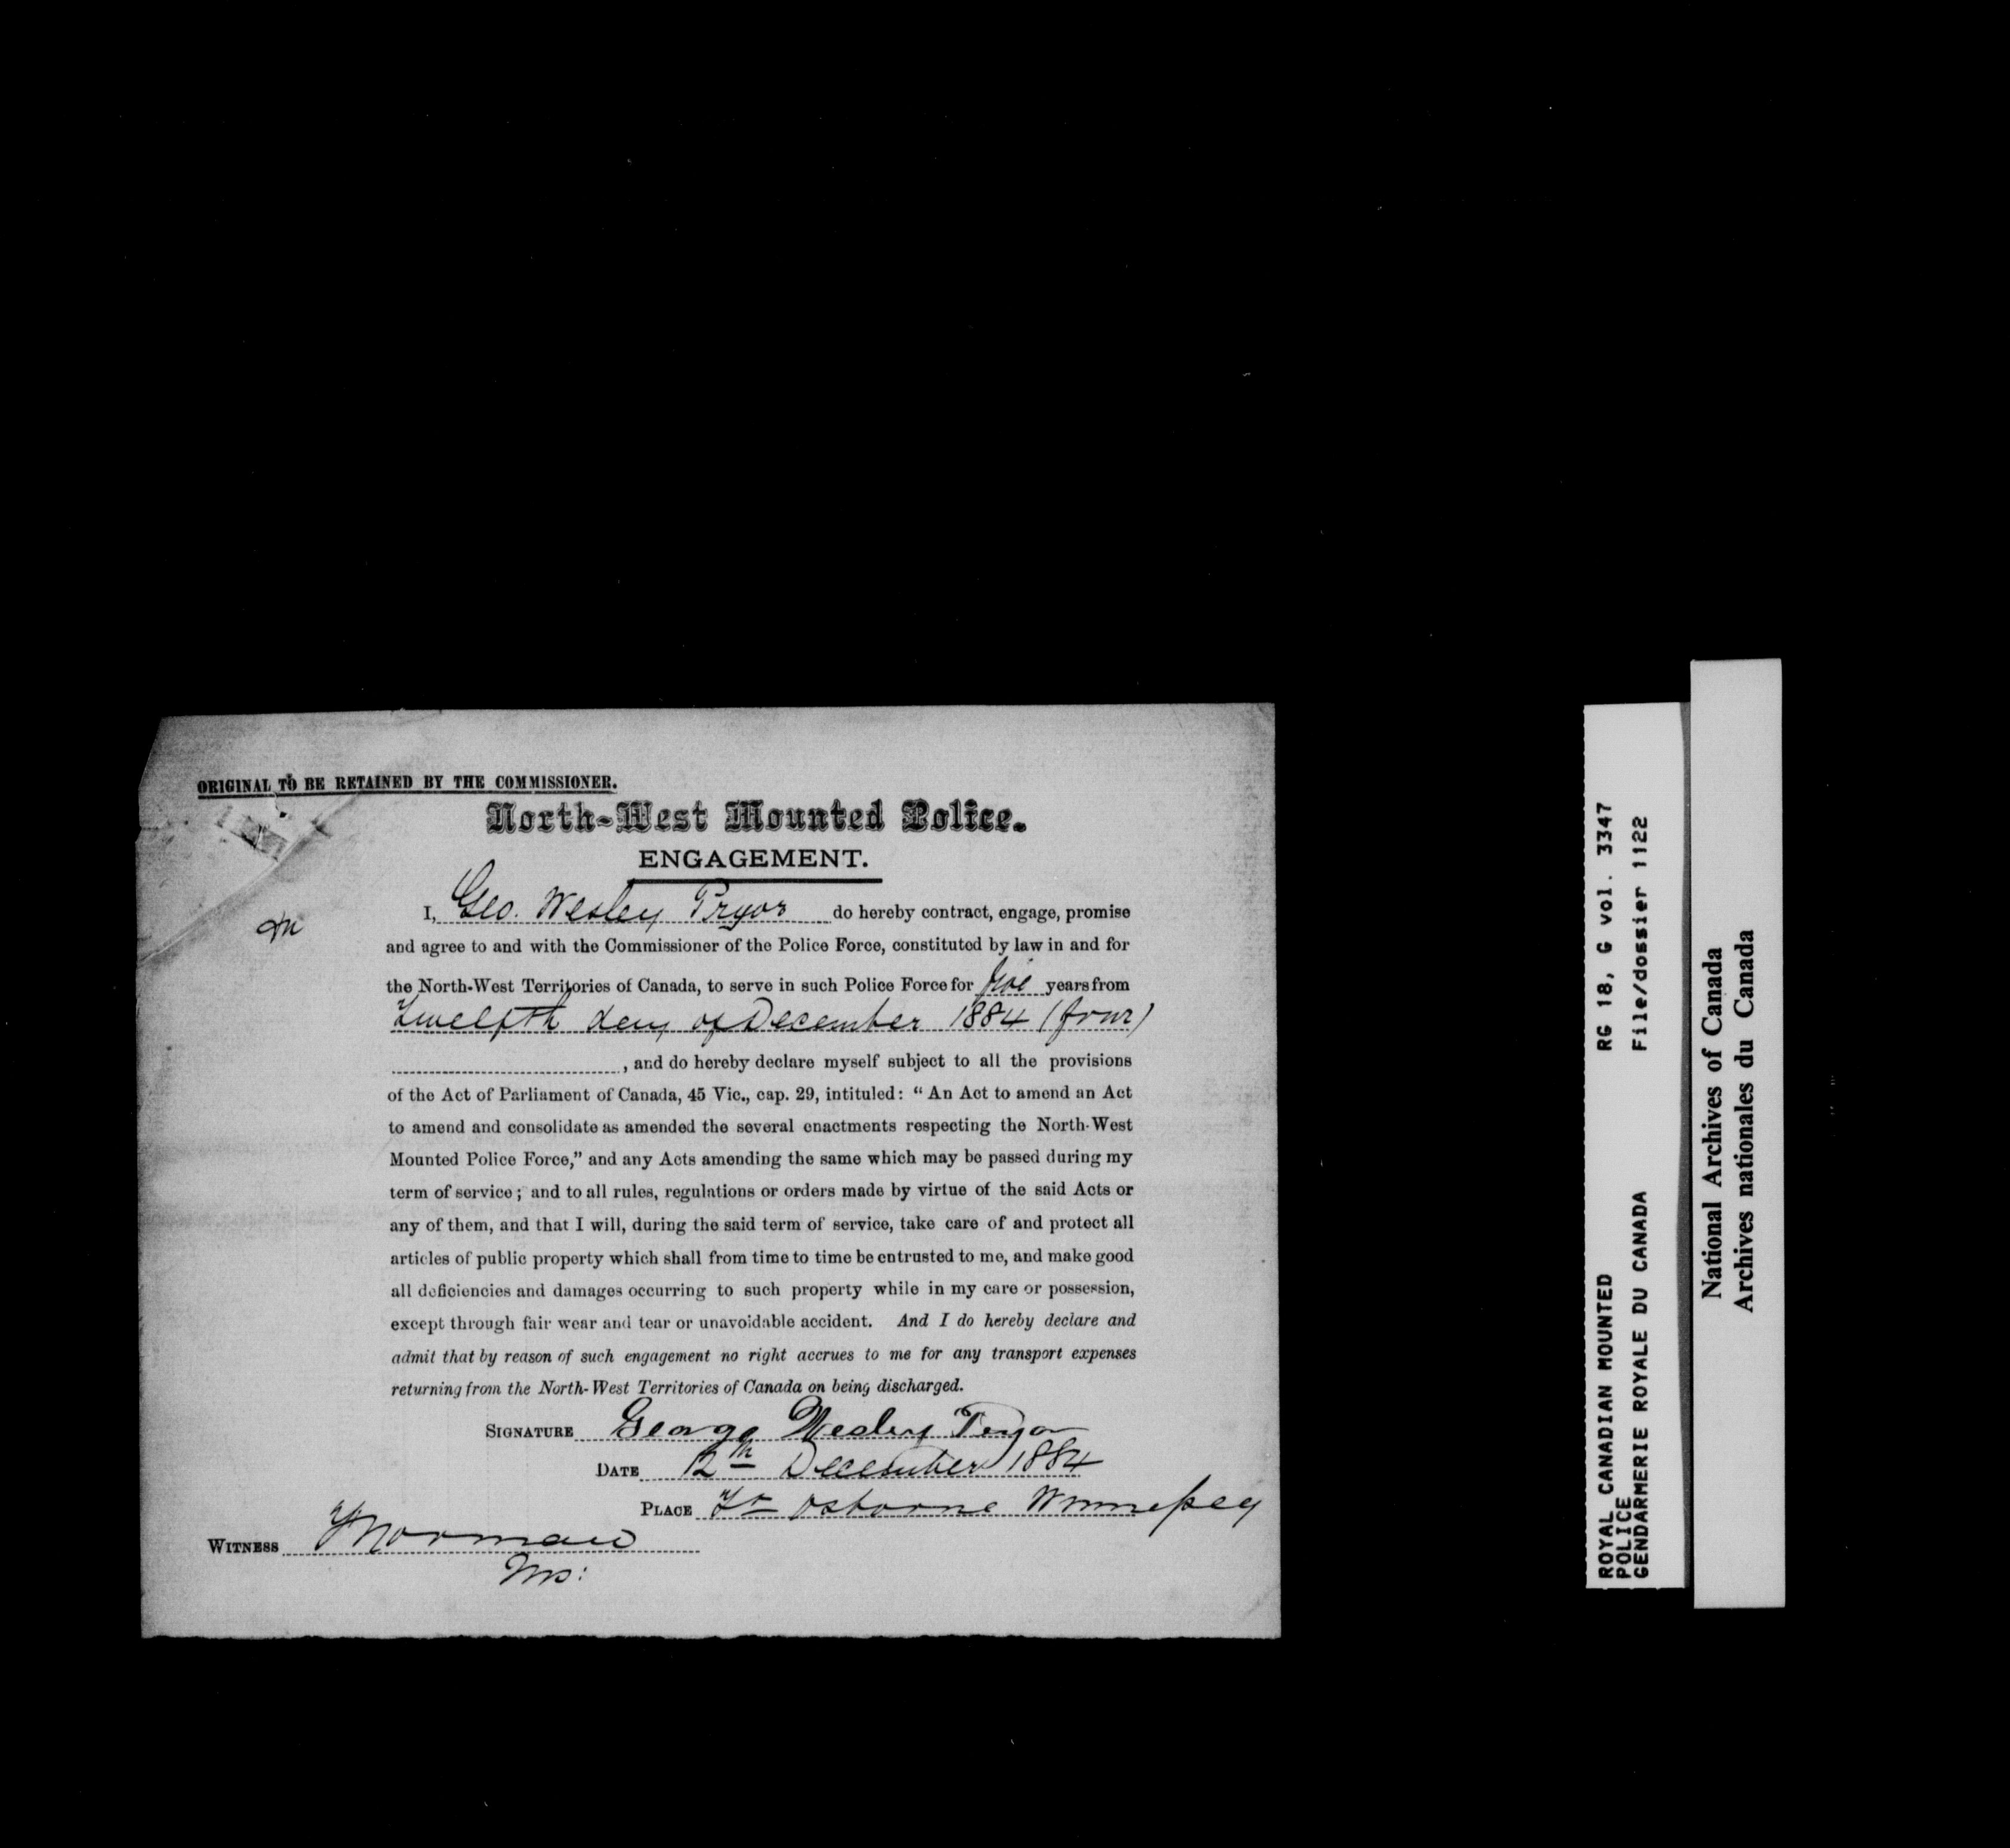 ORIGINAL TO BE RETAINED BY THE COMMISSIONER.
North-West Mounted Police.
ENGAGEMENT.
I, Geo. Wesley Pryor do hereby contract, engage, promise
and agree to and with the Commissioner of the Police Force, constituted by law in and for
the North-West Territories of Canada, to serve in such Police Force for five years from
Twelfth day of December 1884 (four)
, and do hereby declare myself subject to all the provisions
of the Act of Parliament of Canada, 45 Vic., cap. 29, intituled: “ An Act to amend an Act
to amend and consolidate as amended the several enactments respecting the North-West
Mounted Police Force,” and any Acts amending the same which may be passed during my
term of service ; and to all rules, regulations or orders made by virtue of the said Acts or
any of them, and that I will, during the said term of service, take care of and protect all
articles of public property which shall from time to time be entrusted to me, and make good
all deficiencies and damages occurring to such property while in my care or possession,
except through fair wear and tear or unavoidable accident. And I do hereby declare and
admit that by reason of such engagement no right accrues to me for any transport expenses
returning from the North-West Territories of Canada on being discharged.
SIGNATURE George Wesley Pryor
DATE 12th December 1884
PLACE Ft Osborne Winnepeg
WITNESS
ROYAL CANADIAN MOUNTED RG 18, G vol. 3347
POLICE
GENDARMERIE ROYALE DU CANADA File/dossier 1122
National Archives of Canada
Archives nationales du Canada